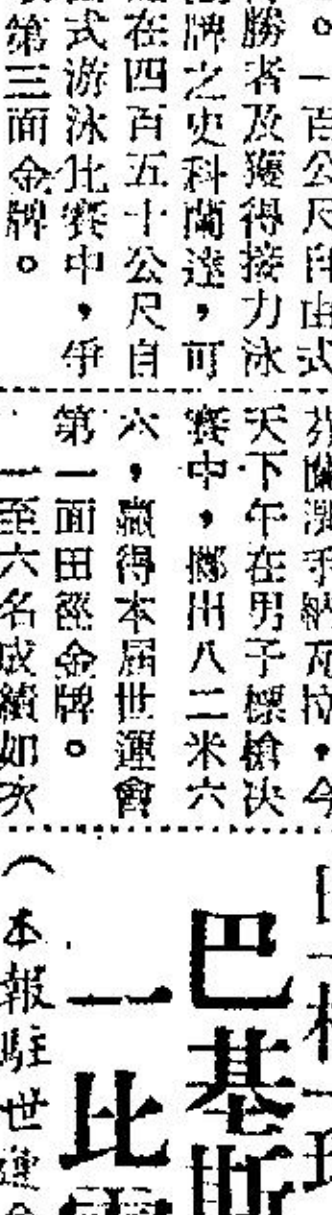 。一百公尺自由式
勝者及獲得接力泳
牌之史科蘭達，可
在四百五十公尺自
式游泳比賽中，爭
第三面金牌。
芬蘭選手納瓦拉，今
天下午在男子標槍决
賽中，擲出八二米六
六，贏得本屆世運會
第一面田徑金牌。
一至六名成績如次
巴基斯
一比
（本報駐世運會